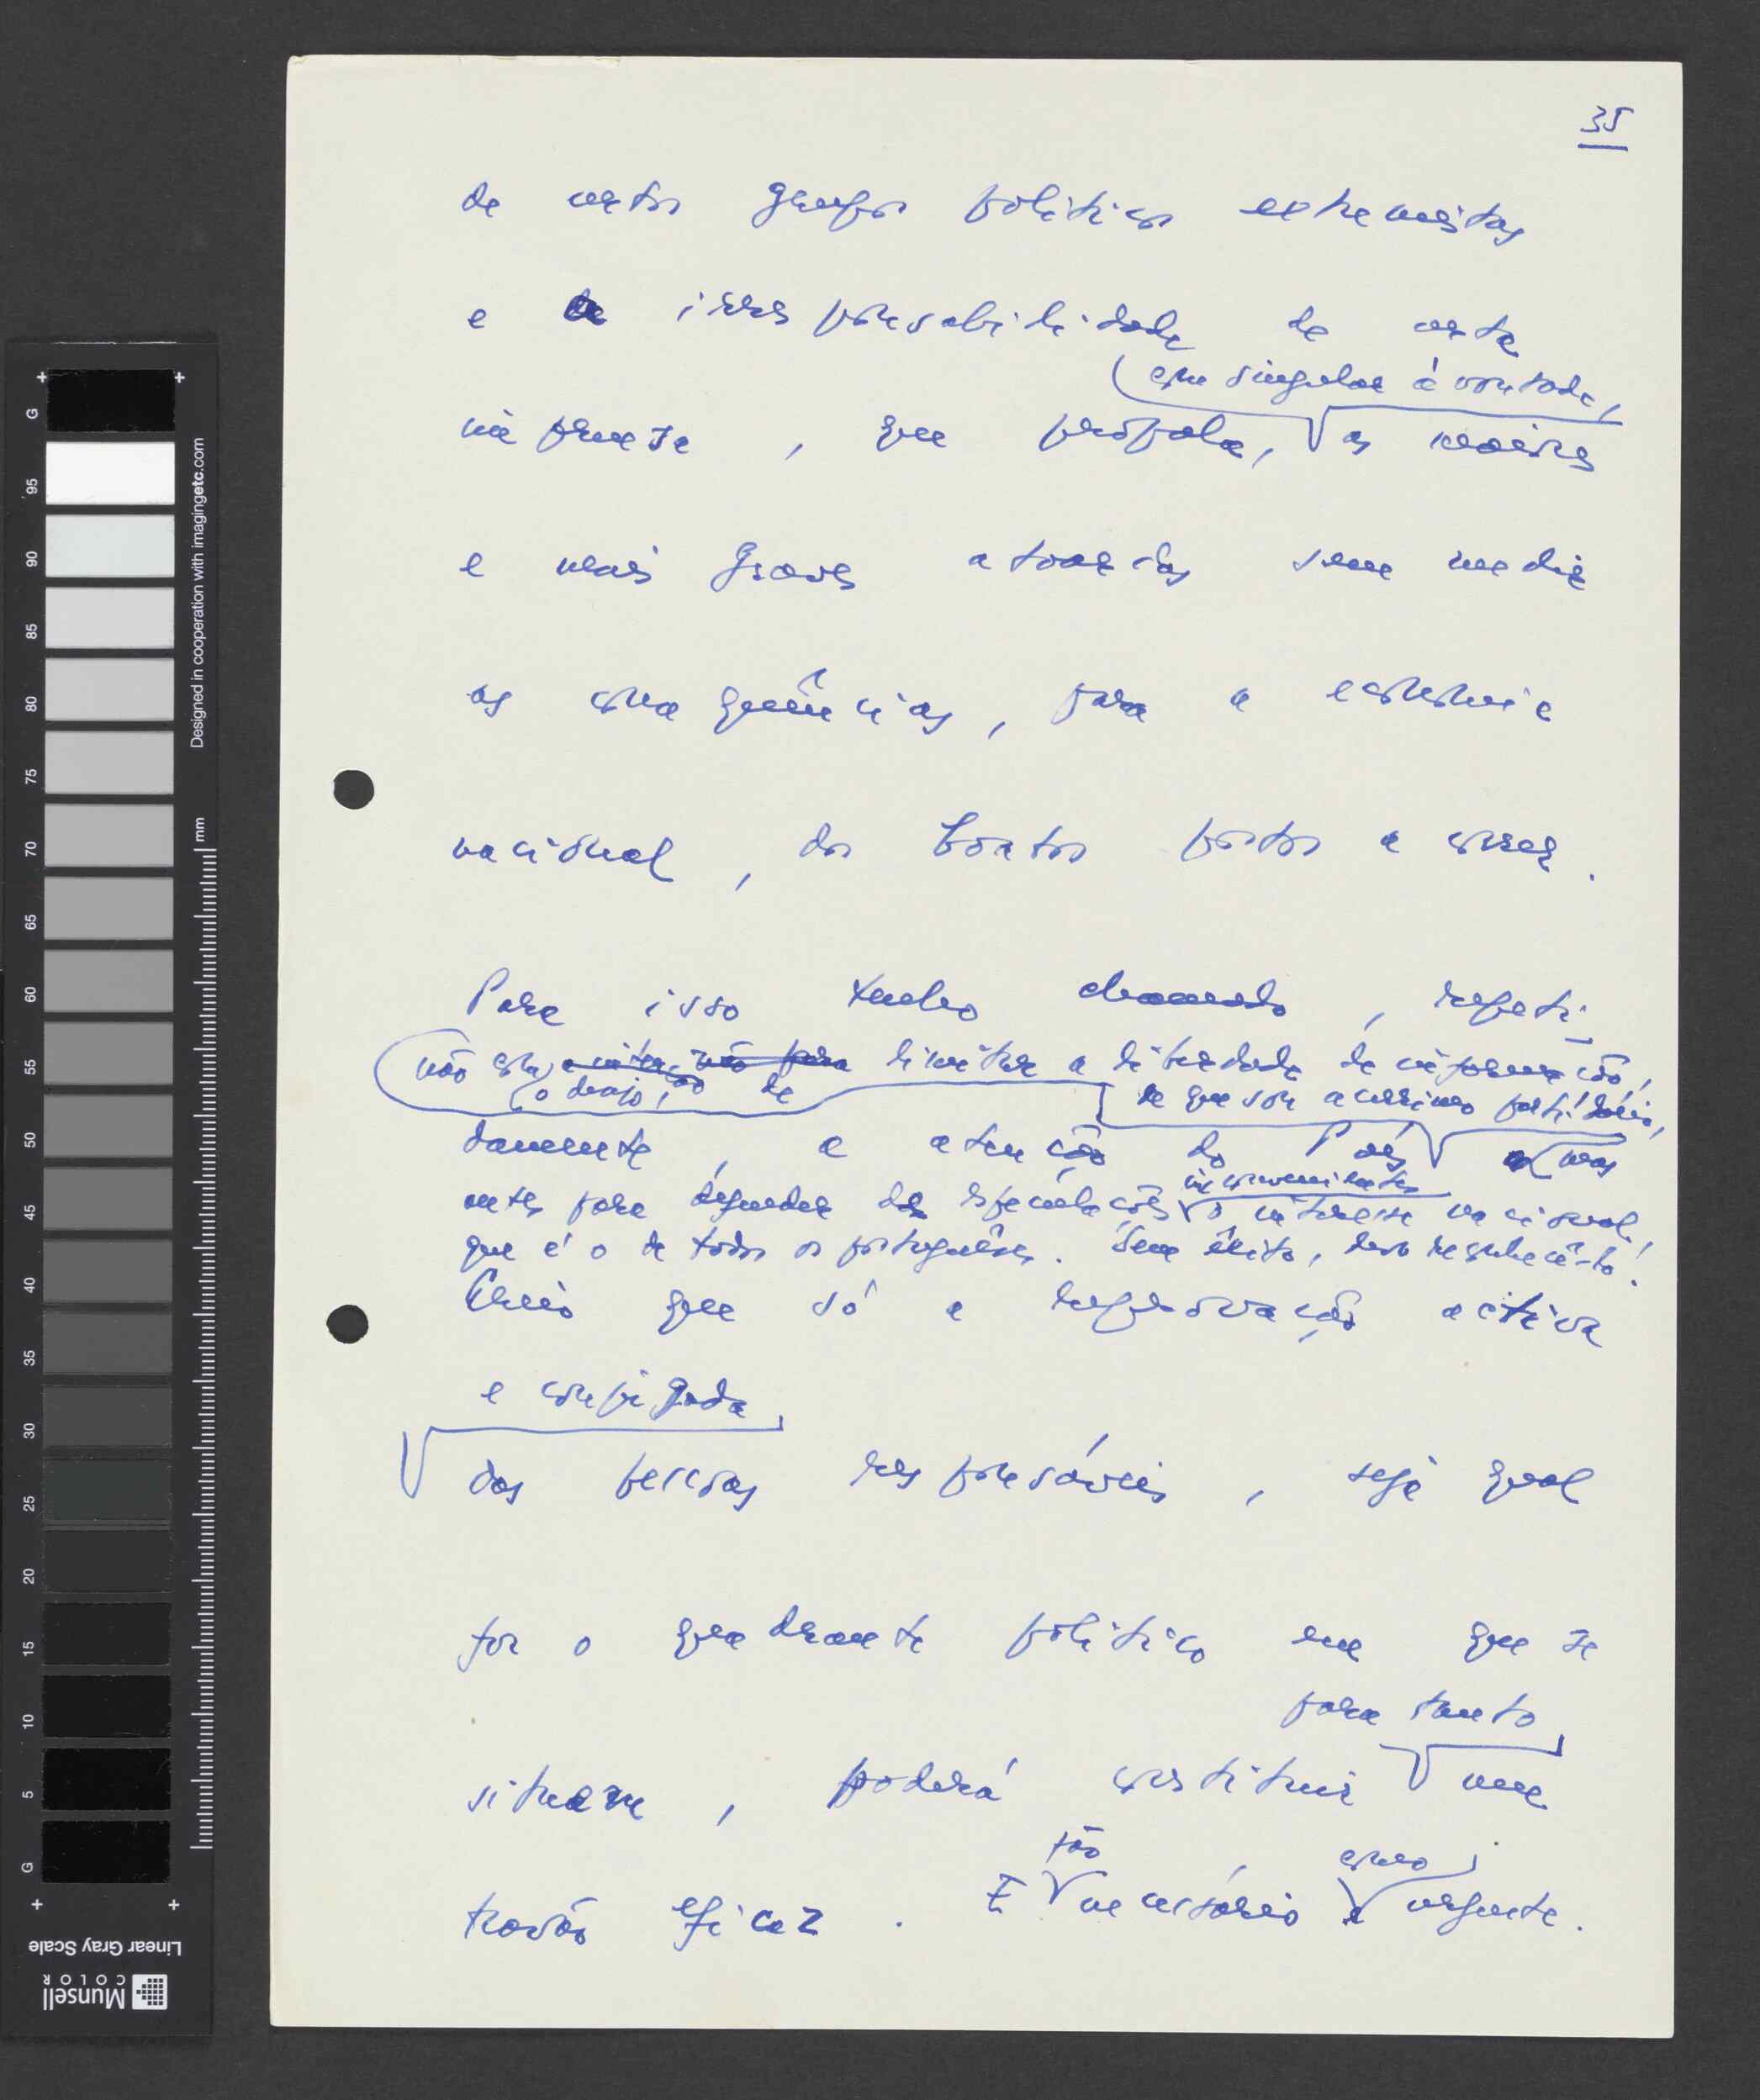 35
de certos grupos políticos extremistas
e da irresponsabilidade de certa
com singular à vontade,
imprensa, que propala, as maiores
e mais graves atoardas sem medir
as consequências, para a economia
nacional, dos boatos postos a correr.
Para isso tenho chamado, repeti-
não com o desejo, não para de limitar a liberdade de informação,
de que sou acérrimo partidário,
damente, a atenção do País mas
inconvenientes
antes para defender das especulações o interesse nacional,
que é o de todos os portugueses. Sem êxito, devo reconhecê-lo!
Creio que só a reprovação activa
e conjugada
das pessoas responsáveis, seja qual
for o quadrante político em que se
para tanto
situem, poderá constituir um
tão como
travão eficaz. É necessário e urgente.
G 95 90 85 80 75 70 65 60 55 50 45 40 35 30 25 20 15 10 5 G
mm
Designed in cooperation with imagingetc.com
Munsell COLOR Linear Gray Scale